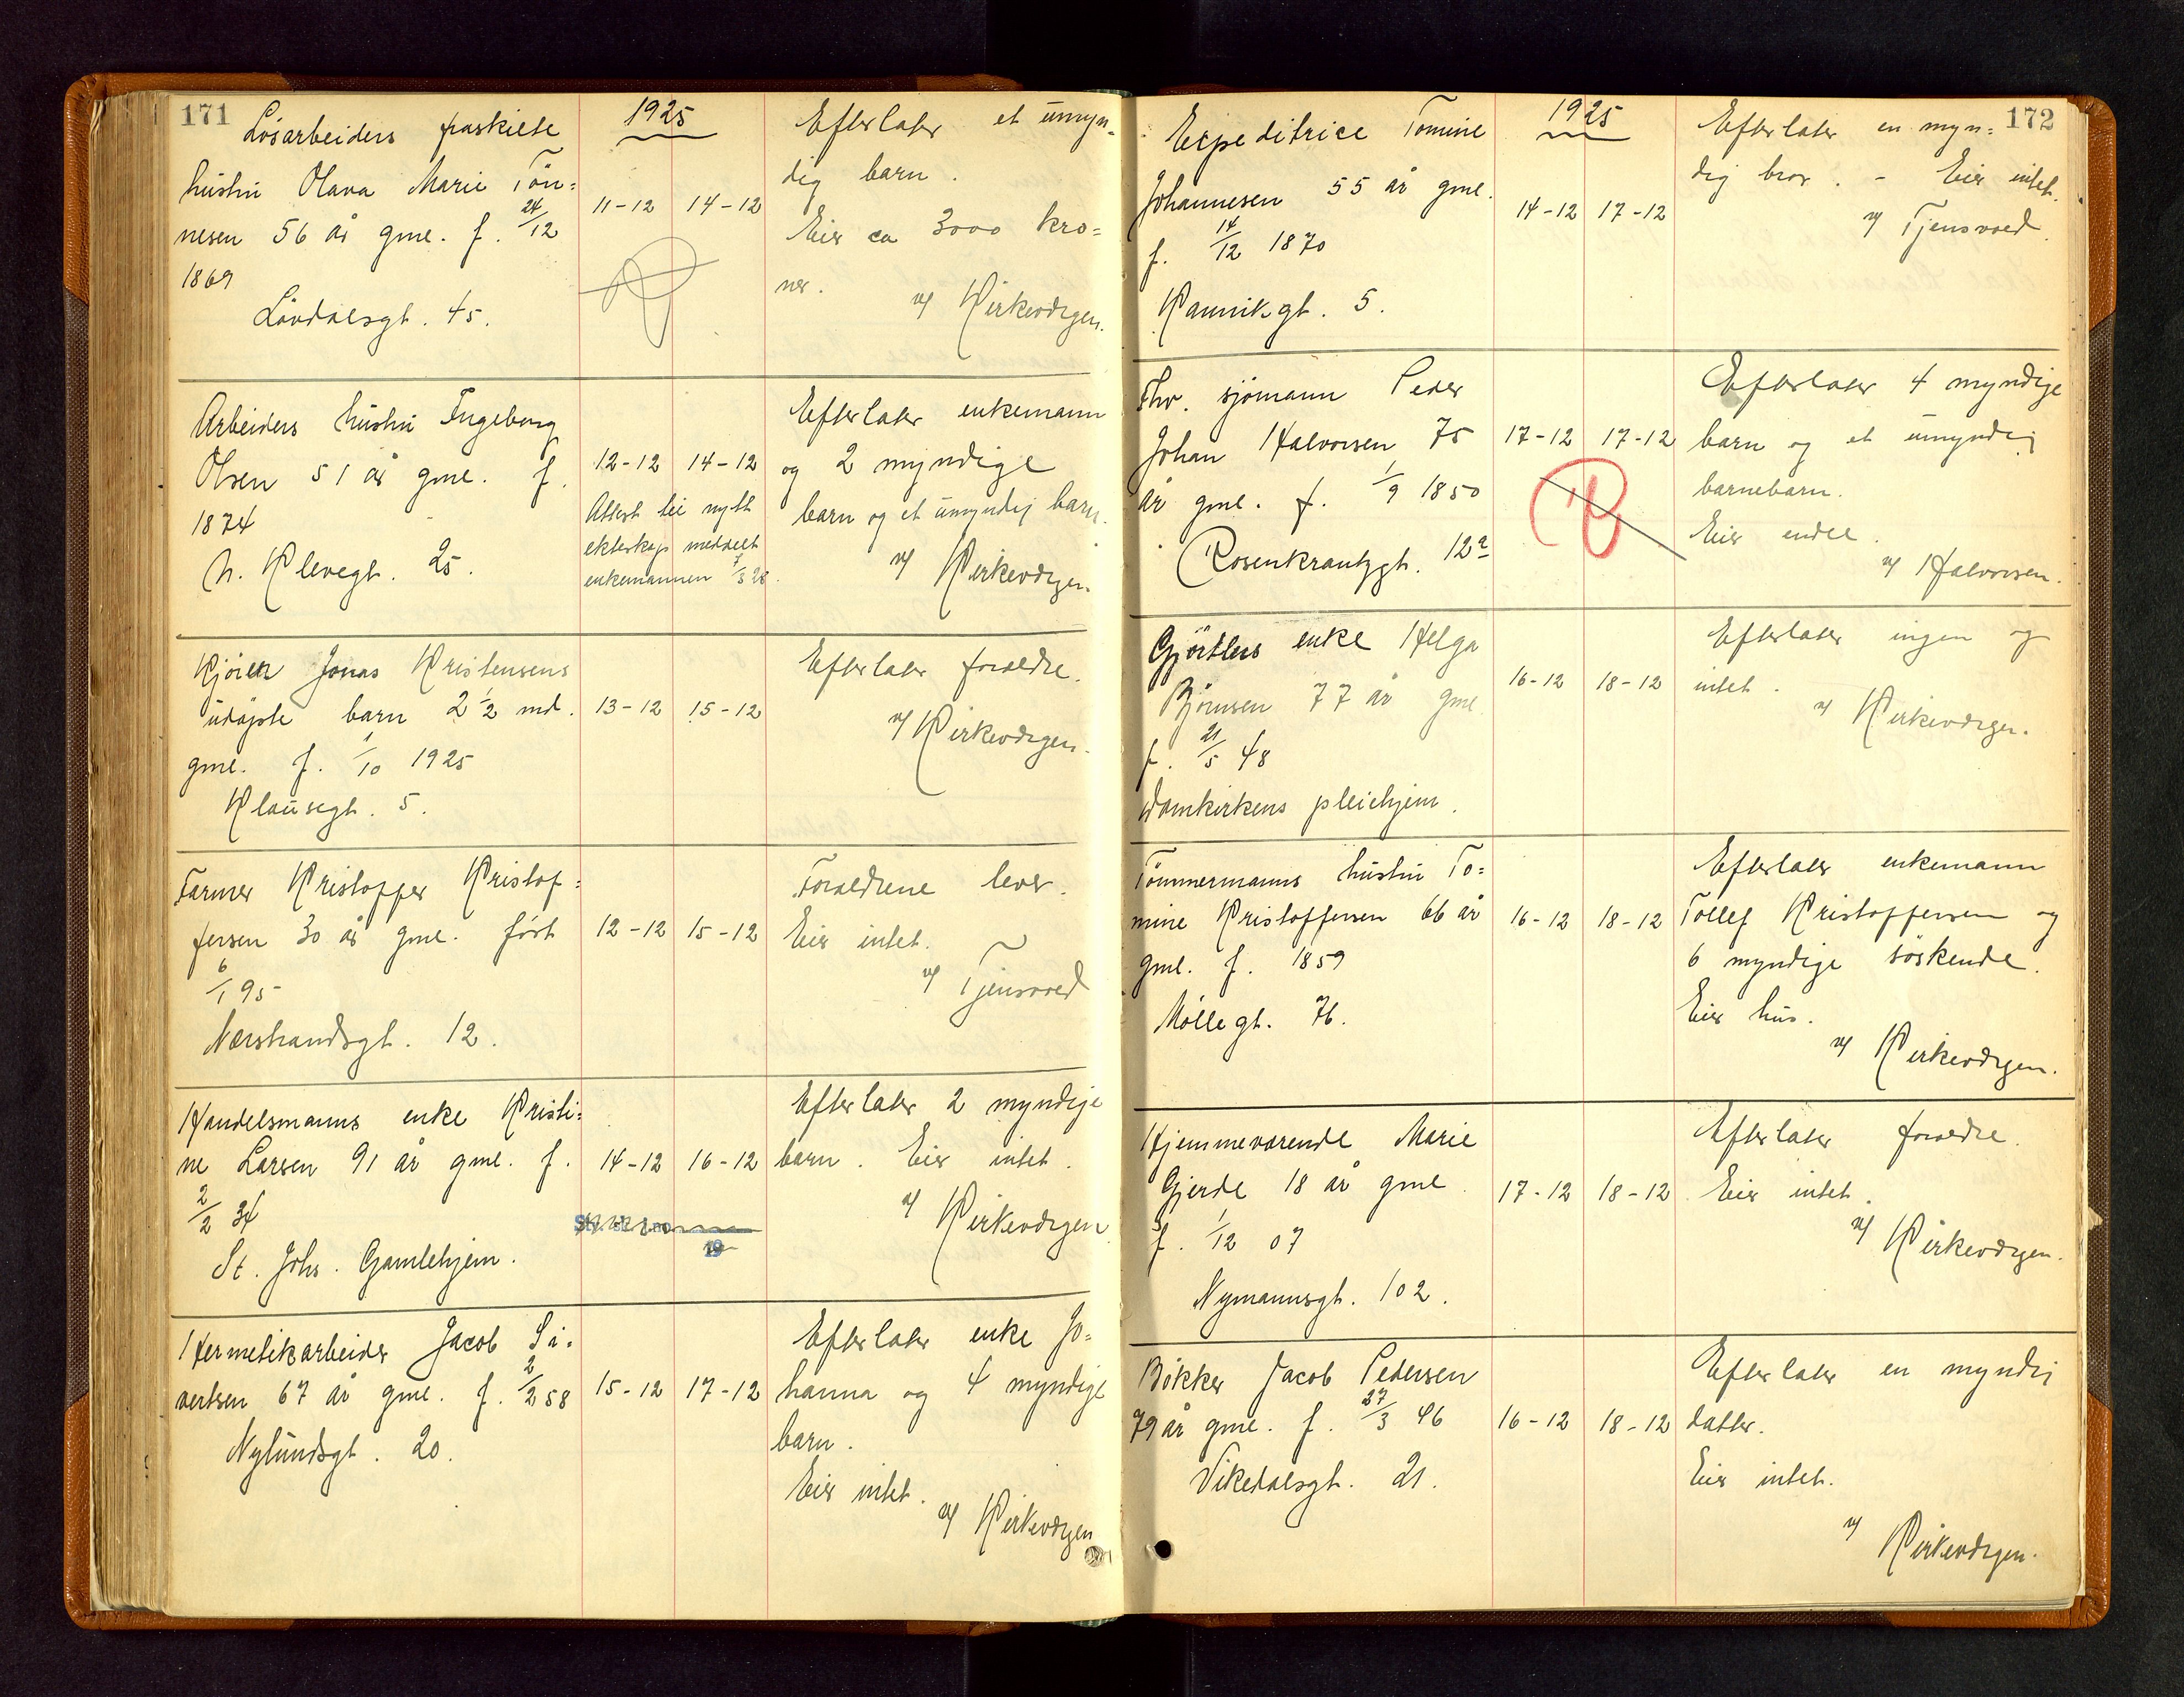 171
1925
Løsarbeiders fraskilte
hustru Olava Marie Tøn=
nesen 56 år gml. f. 24/12
1869
Lövdalsgt. 45.
11-12 14-12
Efterlater et umyn=
dig barn.
Eier ca 3000 kro=
ner.
v/ Kirkevergen.
Arbeiders hustru Ingeborg
Olsen 51 år gml. f.
1874
N. Klevegt. 25.
12-12 14-12
Attest til nytt
ekteskap meddelt
enkemannen 7/3 28.
Efterlater enkemann
og 2 myndige
barn og et umyndig barn.
v/ Kirkevergen.
Kjörer Jonas Kristensens
udøpte barn 2 1/2 md.
gml. f. 1/10 1925
Klausegt. 5.
13-12 15-12
Efterlater foreldre.
v/ Kirkevergen.
Farmer Kristoffer Kristof=
fersen 30 år gml. født
6/1 95
Nærstrandsgt. 12.
12-12 15-12
Foreldrene lever.
Eier intet.
v/ Tjensvoed
Handelsmanns enke Kristi=
ne Larsen 91 år gml. f.
2/2 34
St. Johs. Gamlehjem.
14-12 16-12
Efterlater 2 myndige
barn. Eier intet.
v/ Kirkevergen
Hermetikarbeider Jacob Si=
vertsen 67 år gml. f. 2/2 58
Nylundsgt. 20.
15-12 17-12
Efterlater enke Jo=
hanna og 4 myndige
barn.
Eier intet.
v/ Kirkevergen
172
1925
Expeditrice Tomine
Johannesen 55 år gml.
f. 14/12 1870
Kannikgt. 5.
14-12 17-12
Efterlater en myn=
dig bror. - Eier intet.
v/ Tjensvoed.
Fhv. sjömann Peder
Johan Halvorsen 75
år gml. f. 1/9 1850
Rosenkrantzgt. 12a
17-12 17-12
Efterlater 4 myndige
barn og et umyndig
barnebarn.
Eier endel.
v/ Halvorsen.
Gjörtlers enke Helga
Bjørnsen 77 år gml
f. 21/5 48
Domkirkens pleiehjem.
16-12 18-12
Efterlater ingen og
intet.
v/ Kirkevergen.
Tömmermanns hustru To=
mine Kristoffersen 66 år
gml. f. 1859
Møllegt. 76.
16-12 18-12
Efterlater enkemann
Tollef Kristoffersen og
6 myndige söskende.
Eier hus.
v/ Kirkevergen.
Hjemmeværende Marie
Gjerde 18 år gml.
f. 1/12 07
Nymannsgt. 102.
17-12 18-12
Efterlater foreldre.
Eier intet.
v/ Kirkevergen.
Bøkker Jacob Pedersen
79 år gml. f. 27/3 46
Vikedalsgt. 21.
16-12 18-12
Efterlater en myndig
datter.
Eier intet.
v/ Kirkevergen.